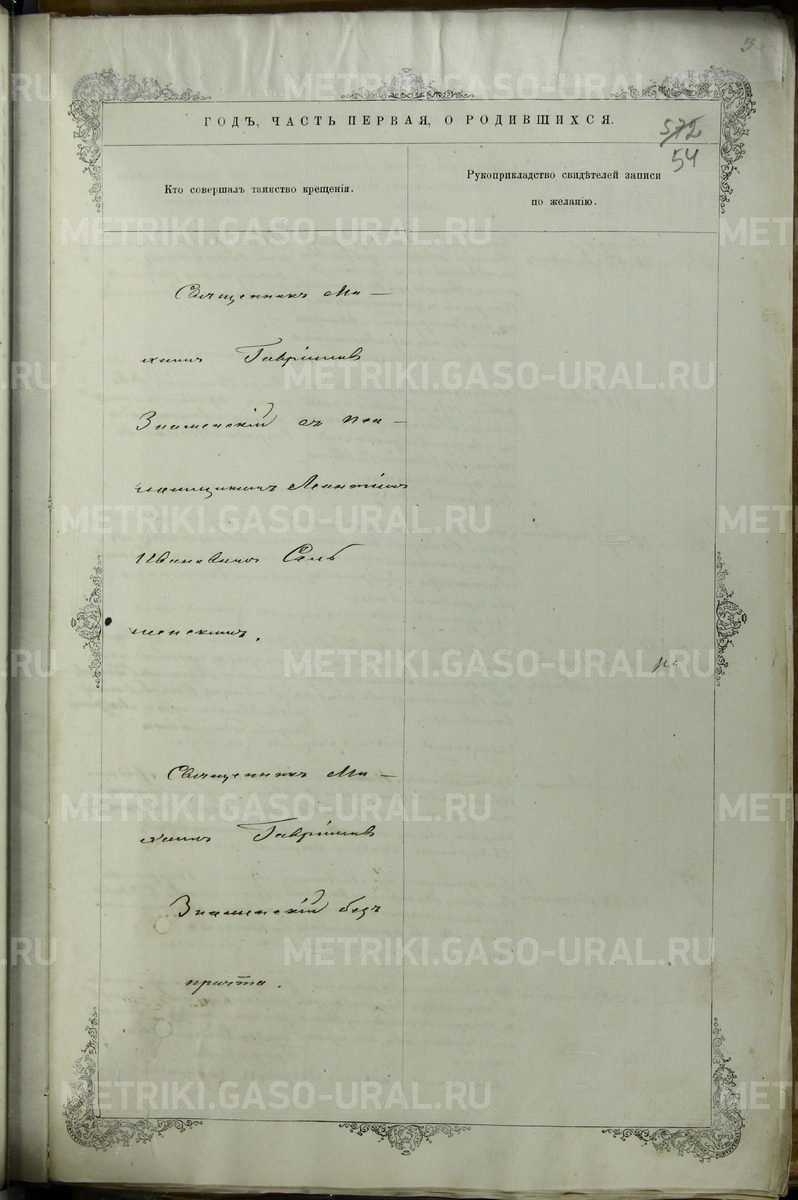 3
ГОДЪ, ЧАСТЬ ПЕРВАЯ, О РОДИВШИХСЯ.
572
54
Кто совершалъ таинство крещенія.
Рукоприкладство свидѣтелей записи
по желанію.
Священникъ Ми-
хаилъ Гаврiиловъ
Знаменскій съ пса-
ломщикомъ
Ивановымъ
Священникъ Ми-
хаилъ Гаврiиловъ
Знаменскій безъ
причта.
METRIKI.GASO-URAL.RU